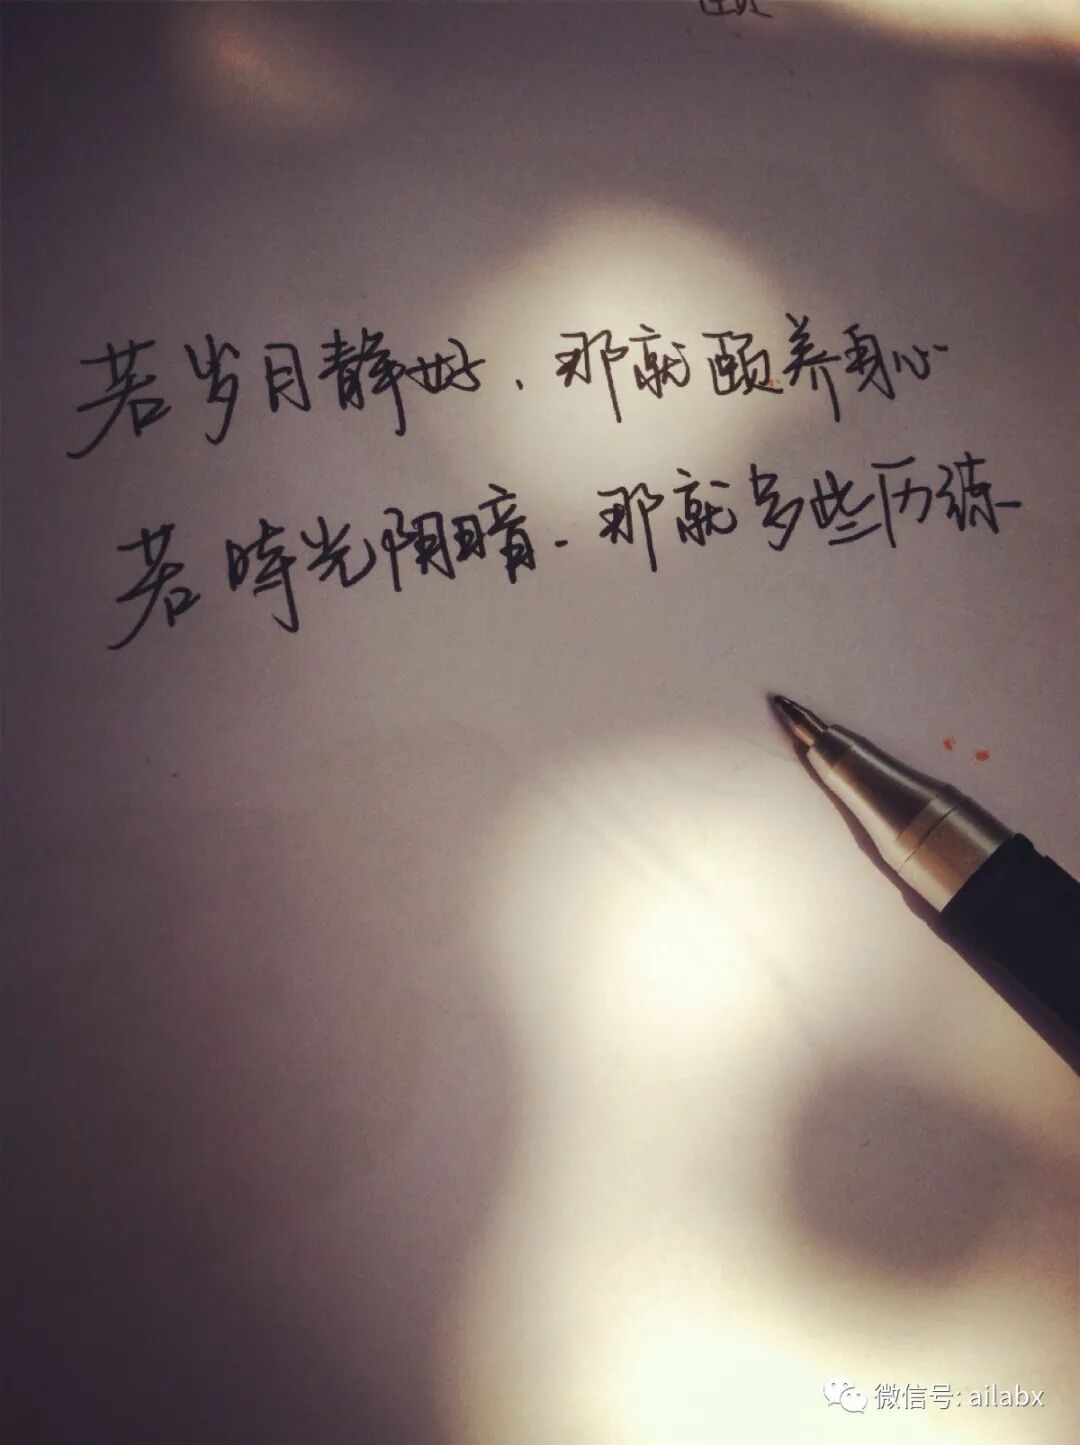 若岁月静好,那就颐养身心
若时光阴暗.那就多些历练
微信号: ailabx